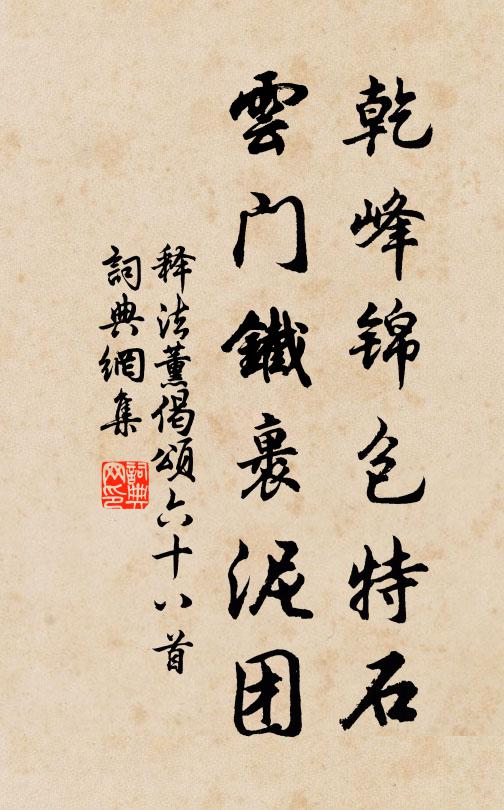 乾峰锦包特石
雲门鐵裹泥团
释法薰偈頌六十八首
詞典網集
詞典網印